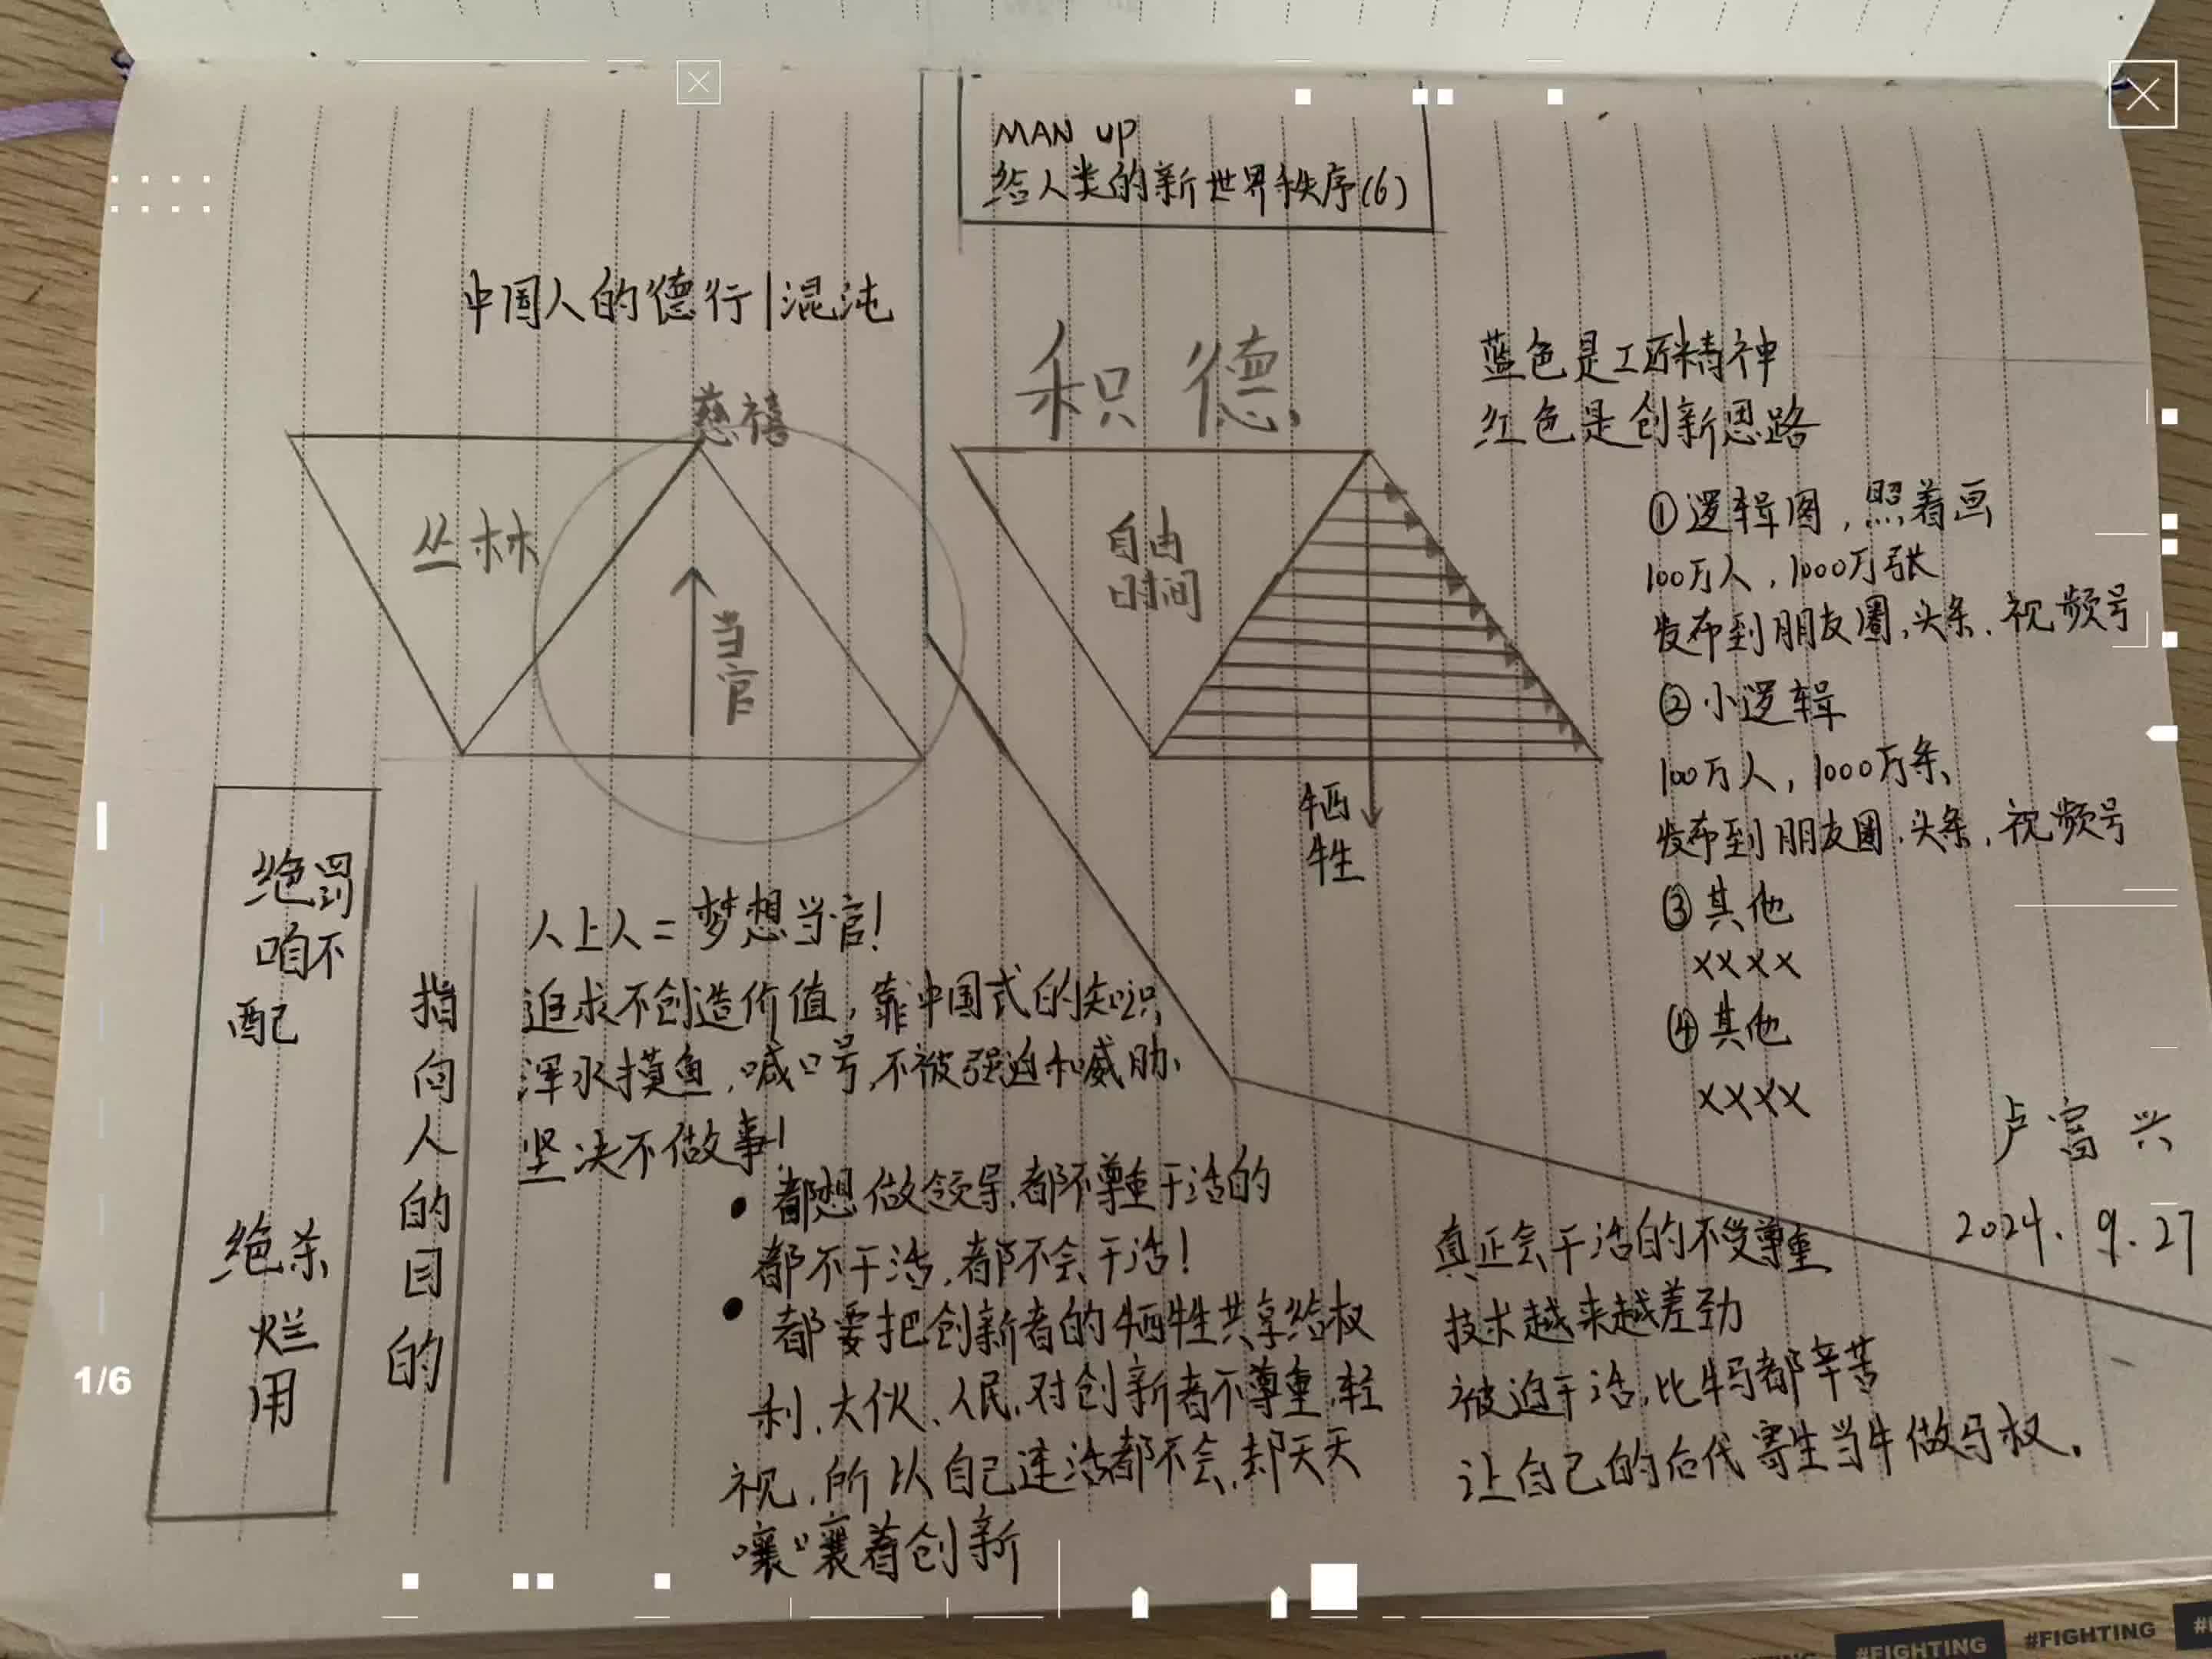 MAN UP
给人类的新世界秩序(6)
中国人的德行|混沌
慈禧
丛林
当官
积德
自由
时间
牺牲
蓝色是工匠精神
红色是创新思路
①逻辑图,照着画
100万人,1000万张
发布到朋友圈、头条、视频号
②小逻辑
100万人,1000万条、
发布到朋友圈、头条、视频号
③其他
××××
④其他
××××
卢富兴
2024.9.27
绝罚
咱不
配
绝杀
烂
用
指向人的目的
人上人=梦想当官!
追求不创造价值,靠中国式的知识
浑水摸鱼,喊口号,不被强迫和威胁、
坚决不做事!
• 都想做领导,都不尊重干活的
都不干活,都不会干活!
• 都要把创新者的牺牲共享给权
利、大伙、人民,对创新者不尊重,轻
视,所以自己连活都不会,却天天
嚷嚷着创新
真正会干活的不受尊重
技术越来越差劲
被迫干活,比牛马都辛苦
让自己的后代寄生当牛做马权。
1/6
#FIGHTING
#FIGHTING